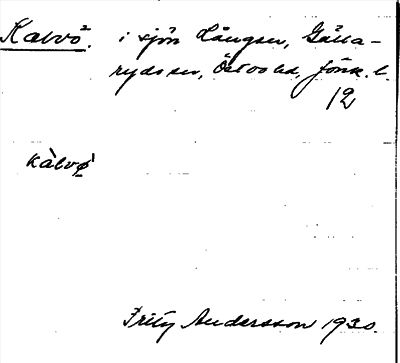 Kalvö. i sjön Långsen, Gälla-
ryds sn, Östbo hd, Jönk. l.
12
kàlvø̀
Fritz Andersson 1930.